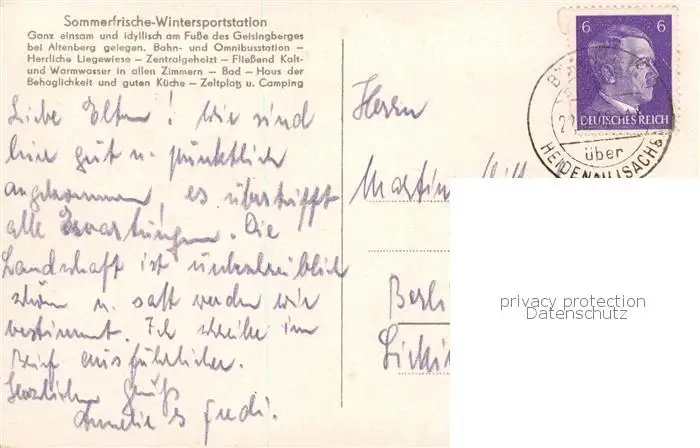 Sommerfrische-Wintersportstation
Ganz einsam und idyllisch am Fuße des Geisingberges
bei Altenberg gelegen. Bahn- und Omnibusstation –
Herrliche Liegewiese – Zentralgeheizt – Fließend Kalt-
und Warmwasser in allen Zimmern – Bad – Haus der
Behaglichkeit und guten Küche – Zeltplatz u. Camping
Liebe Eltern! Wir sind
hier gut u. pünktlich
angekommen, es übertrifft
alle Erwartungen. Die
Landschaft ist unbeschreiblich
schön u. satt werden wir
bestimmt. Ich schreibe im
Brief ausführlicher.
Herzliche Grüße
Herrn
Martin
Berli
6 6
DEUTSCHES REICH
über
HEIDENAU (SACHS
privacy protection
Datenschutz